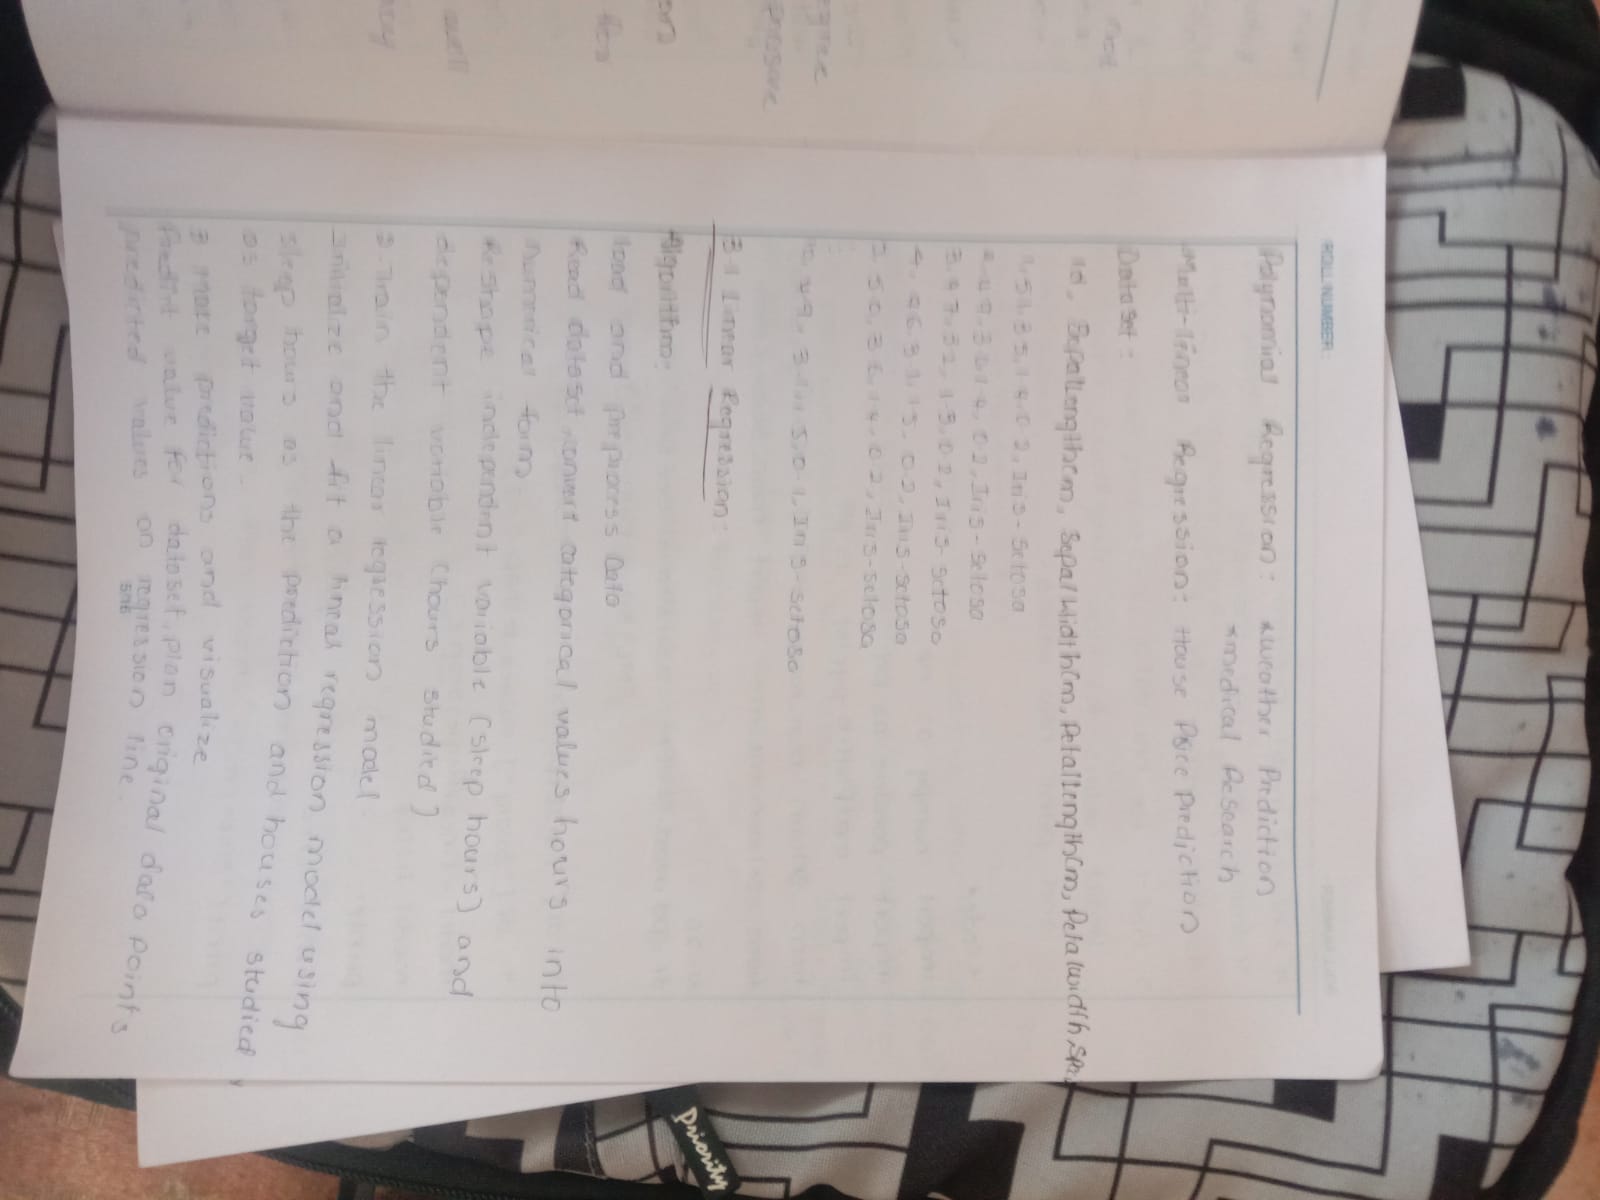 ROLL NUMBER:
Polynomial Regression: *weather Prediction
*medical Research
Multi-linear Regression: House Price Prediction
Dataset:
Id, SepalLengthcm, SepalWidthCm, PetalLengthCm, Petalwidth, Spe
1, 51, 35, 14, 02, Iris-Setosa
2, 49, 30, 14, 02, Iris-Setosa
3, 47, 32, 13, 02, Iris-Setosa
4, 46, 31, 15, 02, Iris-Setosa
5, 50, 36, 14, 02, Iris-Setosa
10, 49, 31, 15, 01, Iris-setosa
3.1 Linear Regression:
Algorithm:
load and preprocess Data
Read dataset, convert categorical values hours into
numerical form
Reshape independent variable (sleep hours) and
dependent variable (hours studied)
2. Train the linear regression model.
Initialize and fit a linear regression model using
sleep hours as the prediction and houses studied
as target value.
3 make predictions and visualize
Predict value for dataset, plan original data points
predicted values on regression line.
5/16
Priority